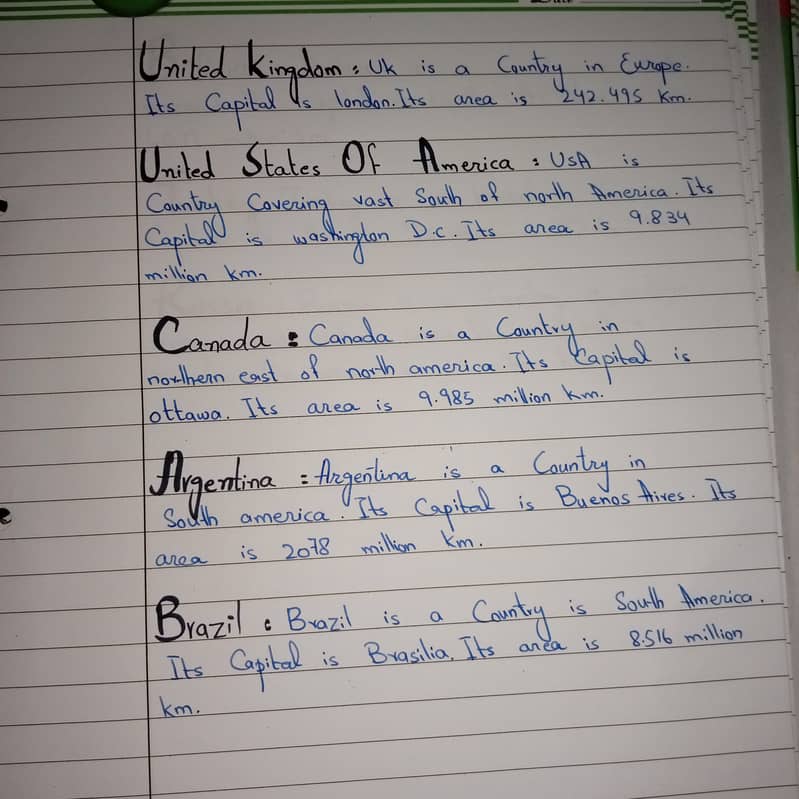 United Kingdom : Uk is a Country in Europe.
Its Capital is london. Its area is 242.495 Km.
United States Of America : USA is
Country Covering vast South of north America. Its
Capital is washington D.c. Its area is 9.834
million km.
Canada : Canada is a Country in
northern east of north america. Its Capital is
ottawa. Its area is 9.985 million km.
Argentina : Argentina is a Country in
South america. Its Capital is Buenos Aires. Its
area is 2078 million Km.
Brazil : Brazil is a Country is South America.
Its Capital is Brasilia. Its area is 8.516 million
km.